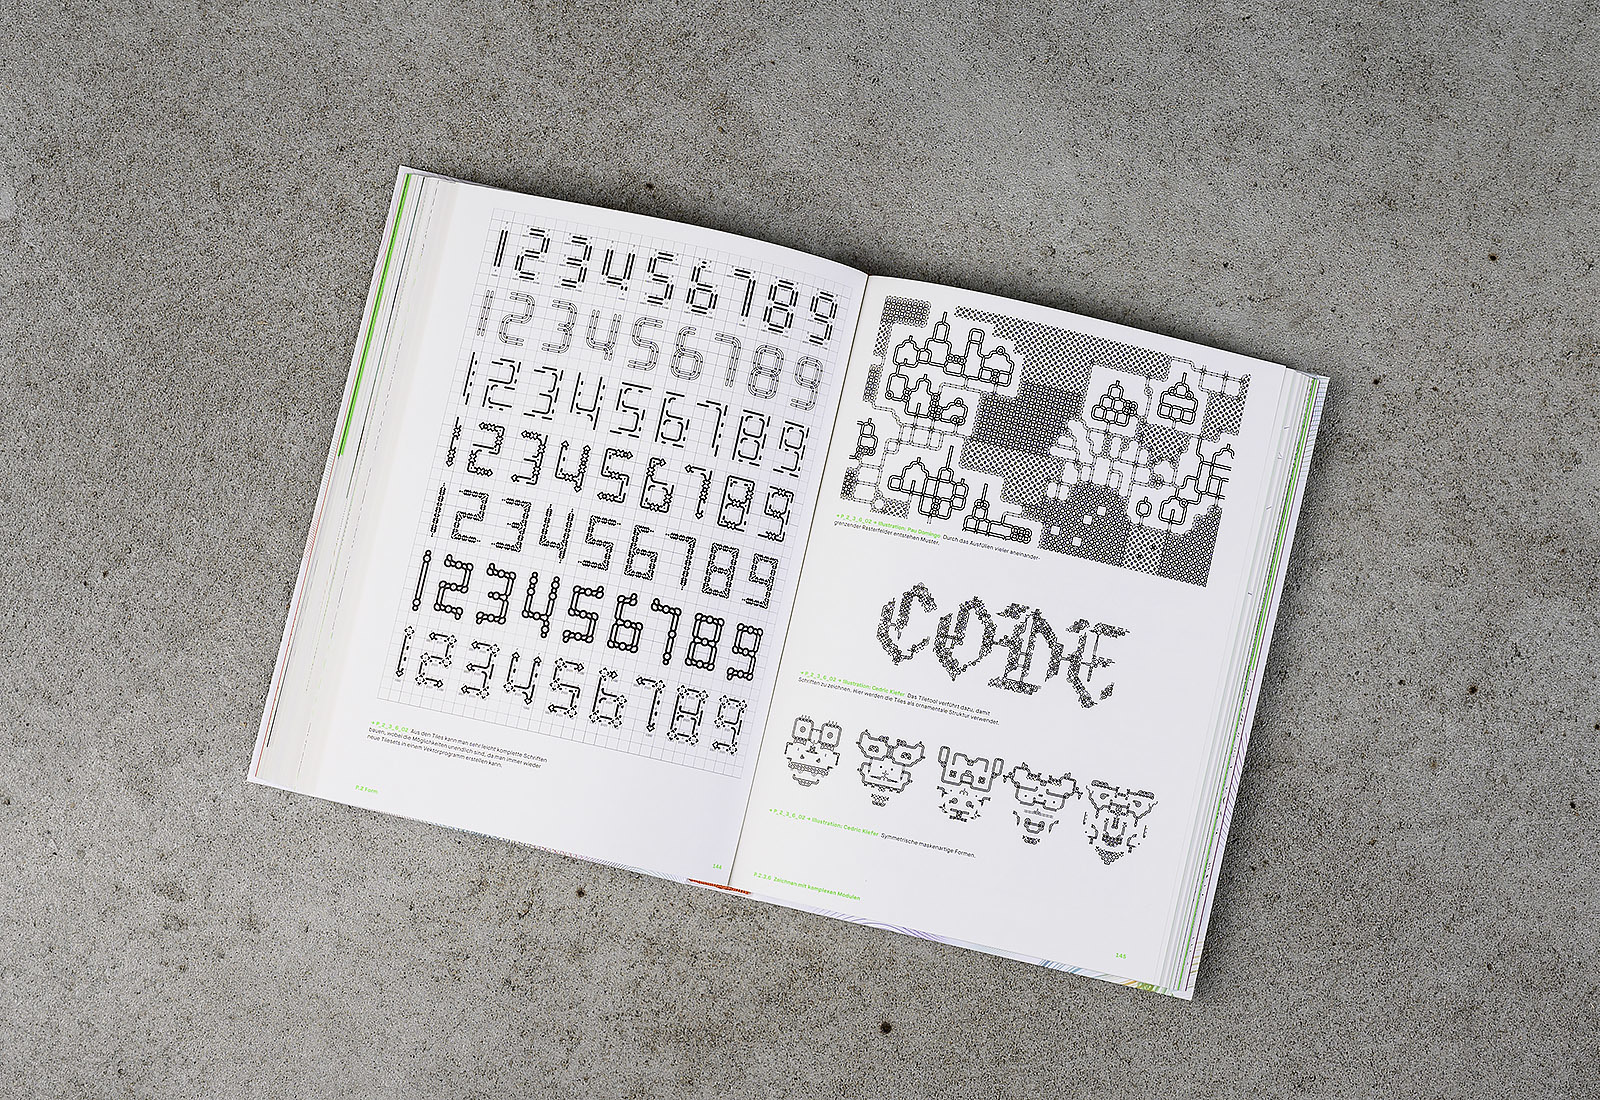 123456789
123456789
123456789
123456789
123456789
123456789
123456789
→ P_2_3_6_02 Aus den Tiles kann man sehr leicht komplette Schriften
bauen, wobei die Möglichkeiten unendlich sind, da man immer wieder
neue Tilesets in einem Vektorprogramm erstellen kann.
P.2 Form
144
→ P_2_3_6_02 → Illustration: Pau Domingo Durch das Ausfüllen vieler aneinander-
grenzender Rasterfelder entstehen Muster.
CODE
→ P_2_3_6_02 → Illustration: Cedric Kiefer Das Tiletool verführt dazu, damit
Schriften zu zeichnen. Hier werden die Tiles als ornamentale Struktur verwendet.
→ P_2_3_6_02 → Illustration: Cedric Kiefer Symmetrische maskenartige Formen.
P.2.3.6 Zeichnen mit komplexen Modulen
145